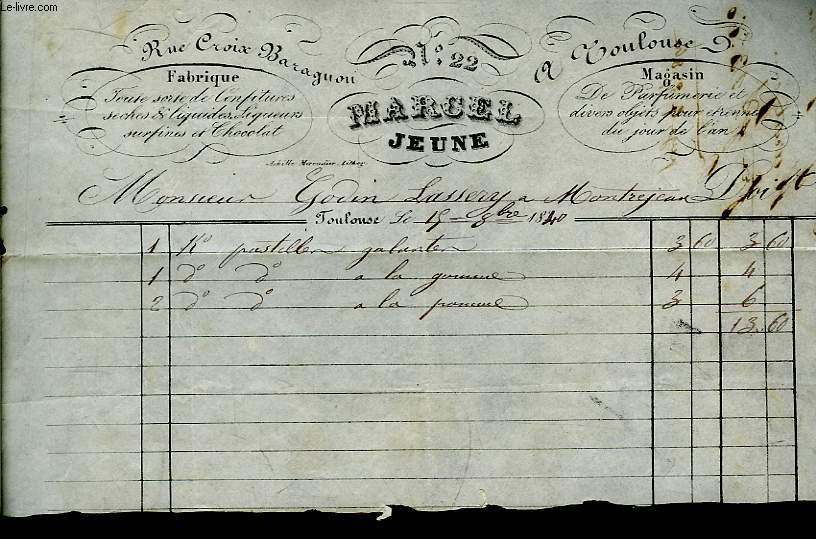 Le-livre.com
Rue Croix Baragnon
N.º 22
A Toulouse
Fabrique
Toute sorte de Confitures
seches & liquides, Liqueurs
surfines et Chocolat
MARCEL
JEUNE
Magasin
De Parfumerie et
divers objets pour étrennes
du jour de l'an
Achille Mercadier Lithog.
Monsieur Godin Lassery a Montrejeau Doit
Toulouse le 15 8bre 1840
1 Ko pastilles galantes 3 60 3 60
1 do do a la gomme 4 4
2 do do a la pomme 3 6
13 60